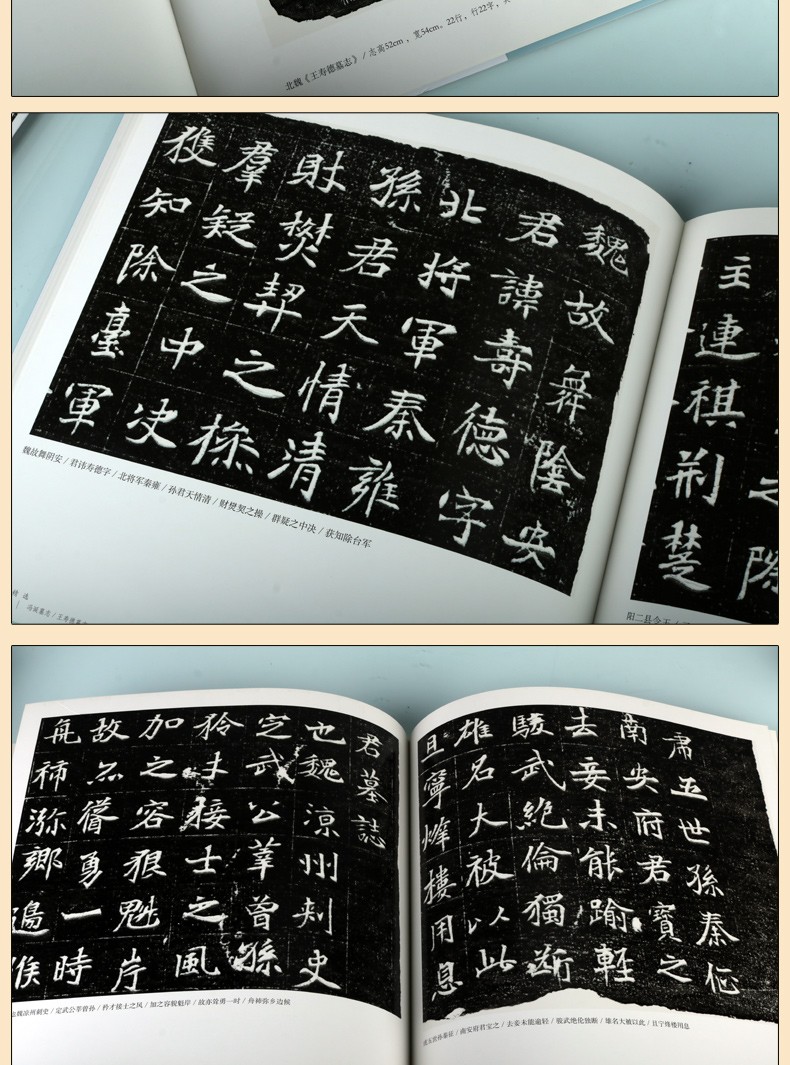 北魏《王寿德墓志》/ 志高52cm，宽54cm。22行，行22字，
魏故舞陰安
君諱壽德字
北將軍秦雍
孫君天情清
財樊契之操
羣疑之中决
獲知除臺軍
魏故舞阴安 / 君讳寿德字 / 北将军秦雍 / 孙君天情清 / 财樊契之操 / 群疑之中决 / 获知除台军
冯诞墓志 / 王寿德墓
主連祺荊楚
之際
阳二县令王
肅五世孫秦征
南安府君寶之
去妾未能踰輕
駿武絶倫獨斷
雄名大被以此
且寧烽樓用息
君墓誌
也魏涼州刺史
定武公莘曾孫
矜才接士之風
加之容狠魁岸
故尒聳勇一時
舟柿㳽鄉邊候
肃五世孙秦征 / 南安府君宝之 / 去妾未能逾轻 / 骏武绝伦独断 / 雄名大被以此 / 且宁烽楼用息
也魏凉州刺史 / 定武公莘曾孙 / 矜才接士之风 / 加之容貌魁岸 / 故亦耸勇一时 / 舟柿弥乡边候